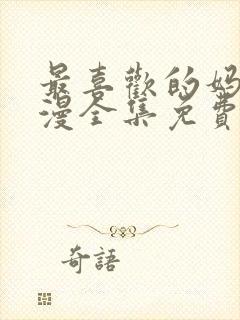 最喜歡的媽
漫全集免費
奇語